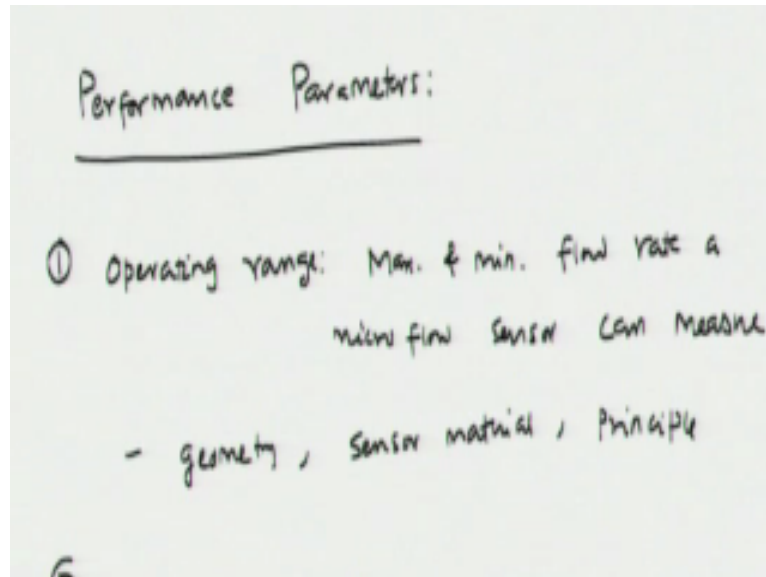 Performance Parameters:
① Operating range: Max. & min. flow rate a
micro flow sensor can measure
- geometry, sensor material, Principle